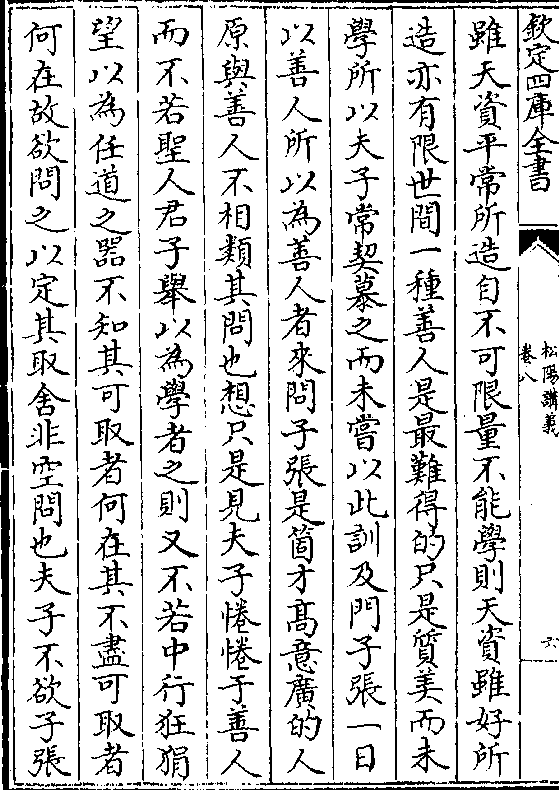 欽定四庫全書
松陽講義
卷八
六
雖天資平常所造自不可限量不能學則天資雖好所
造亦有限世間一種善人是最難得的只是質美而未
學所以夫子常契慕之而未嘗以此訓及門子張一日
以善人所以為善人者來問子張是箇才髙意廣的人
原與善人不相類其問也想只是見夫子惓惓于善人
而不若聖人君子舉以為學者之則又不若中行狂狷
望以為任道之器不知其可取者何在其不盡可取者
何在故欲問之以定其取舍非空問也夫子不欲子張